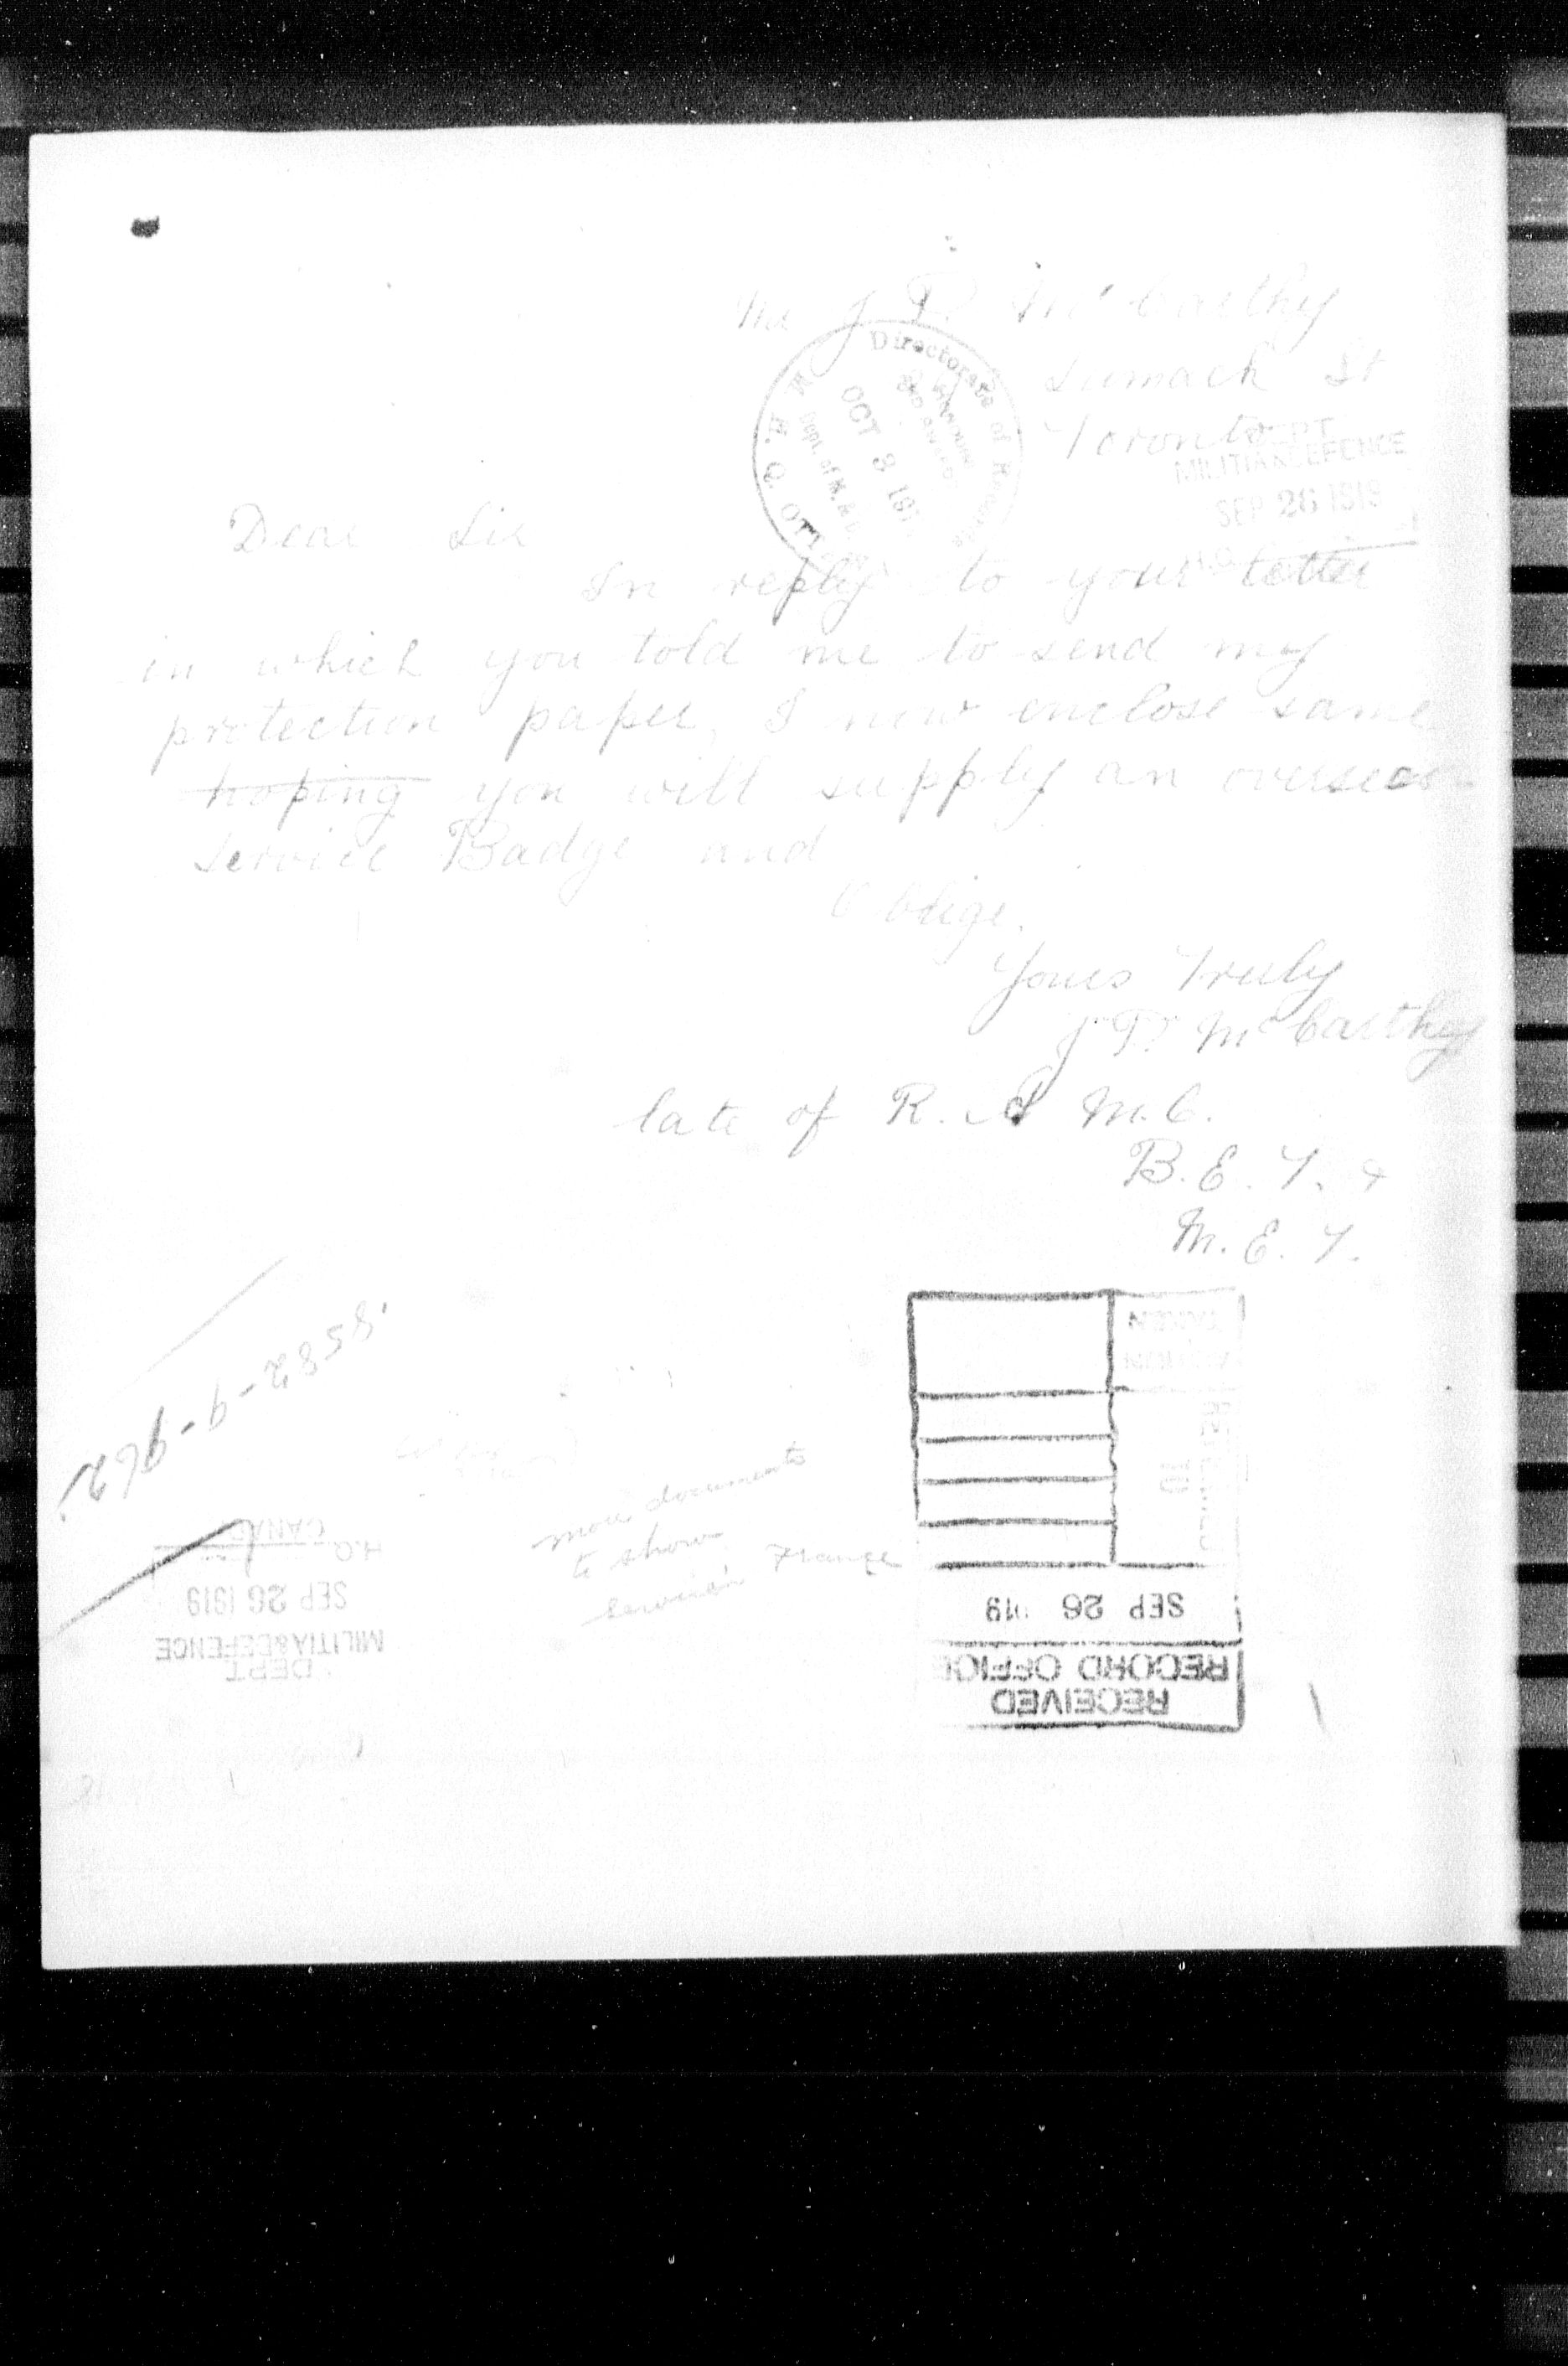 Mr J. P. McCarthy
Sumach St
Toronto
Directorate of Records
OCT 3 191
Dept. of M. &
H. Q. OTT
DEPT
MILITIA & DEFENCE
SEP 26 1919
H.Q.
Dear Sir
In reply to your letter
in which you told me to send my
protection paper, I now enclose same
hoping you will supply an overseas
Service Badge and
Oblige.
Yours Truly
J. P. McCarthy
late of R. A M.C.
B. E. F. &
M. E. F.
more documents
to show
service in France
RECEIVED
RECORD OFFICE
SEP 26 1919
REFERRED
TO
ACTION
TAKEN
DEPT
MILITIA & DEFENCE
SEP 26 1919
H.Q. CANADA